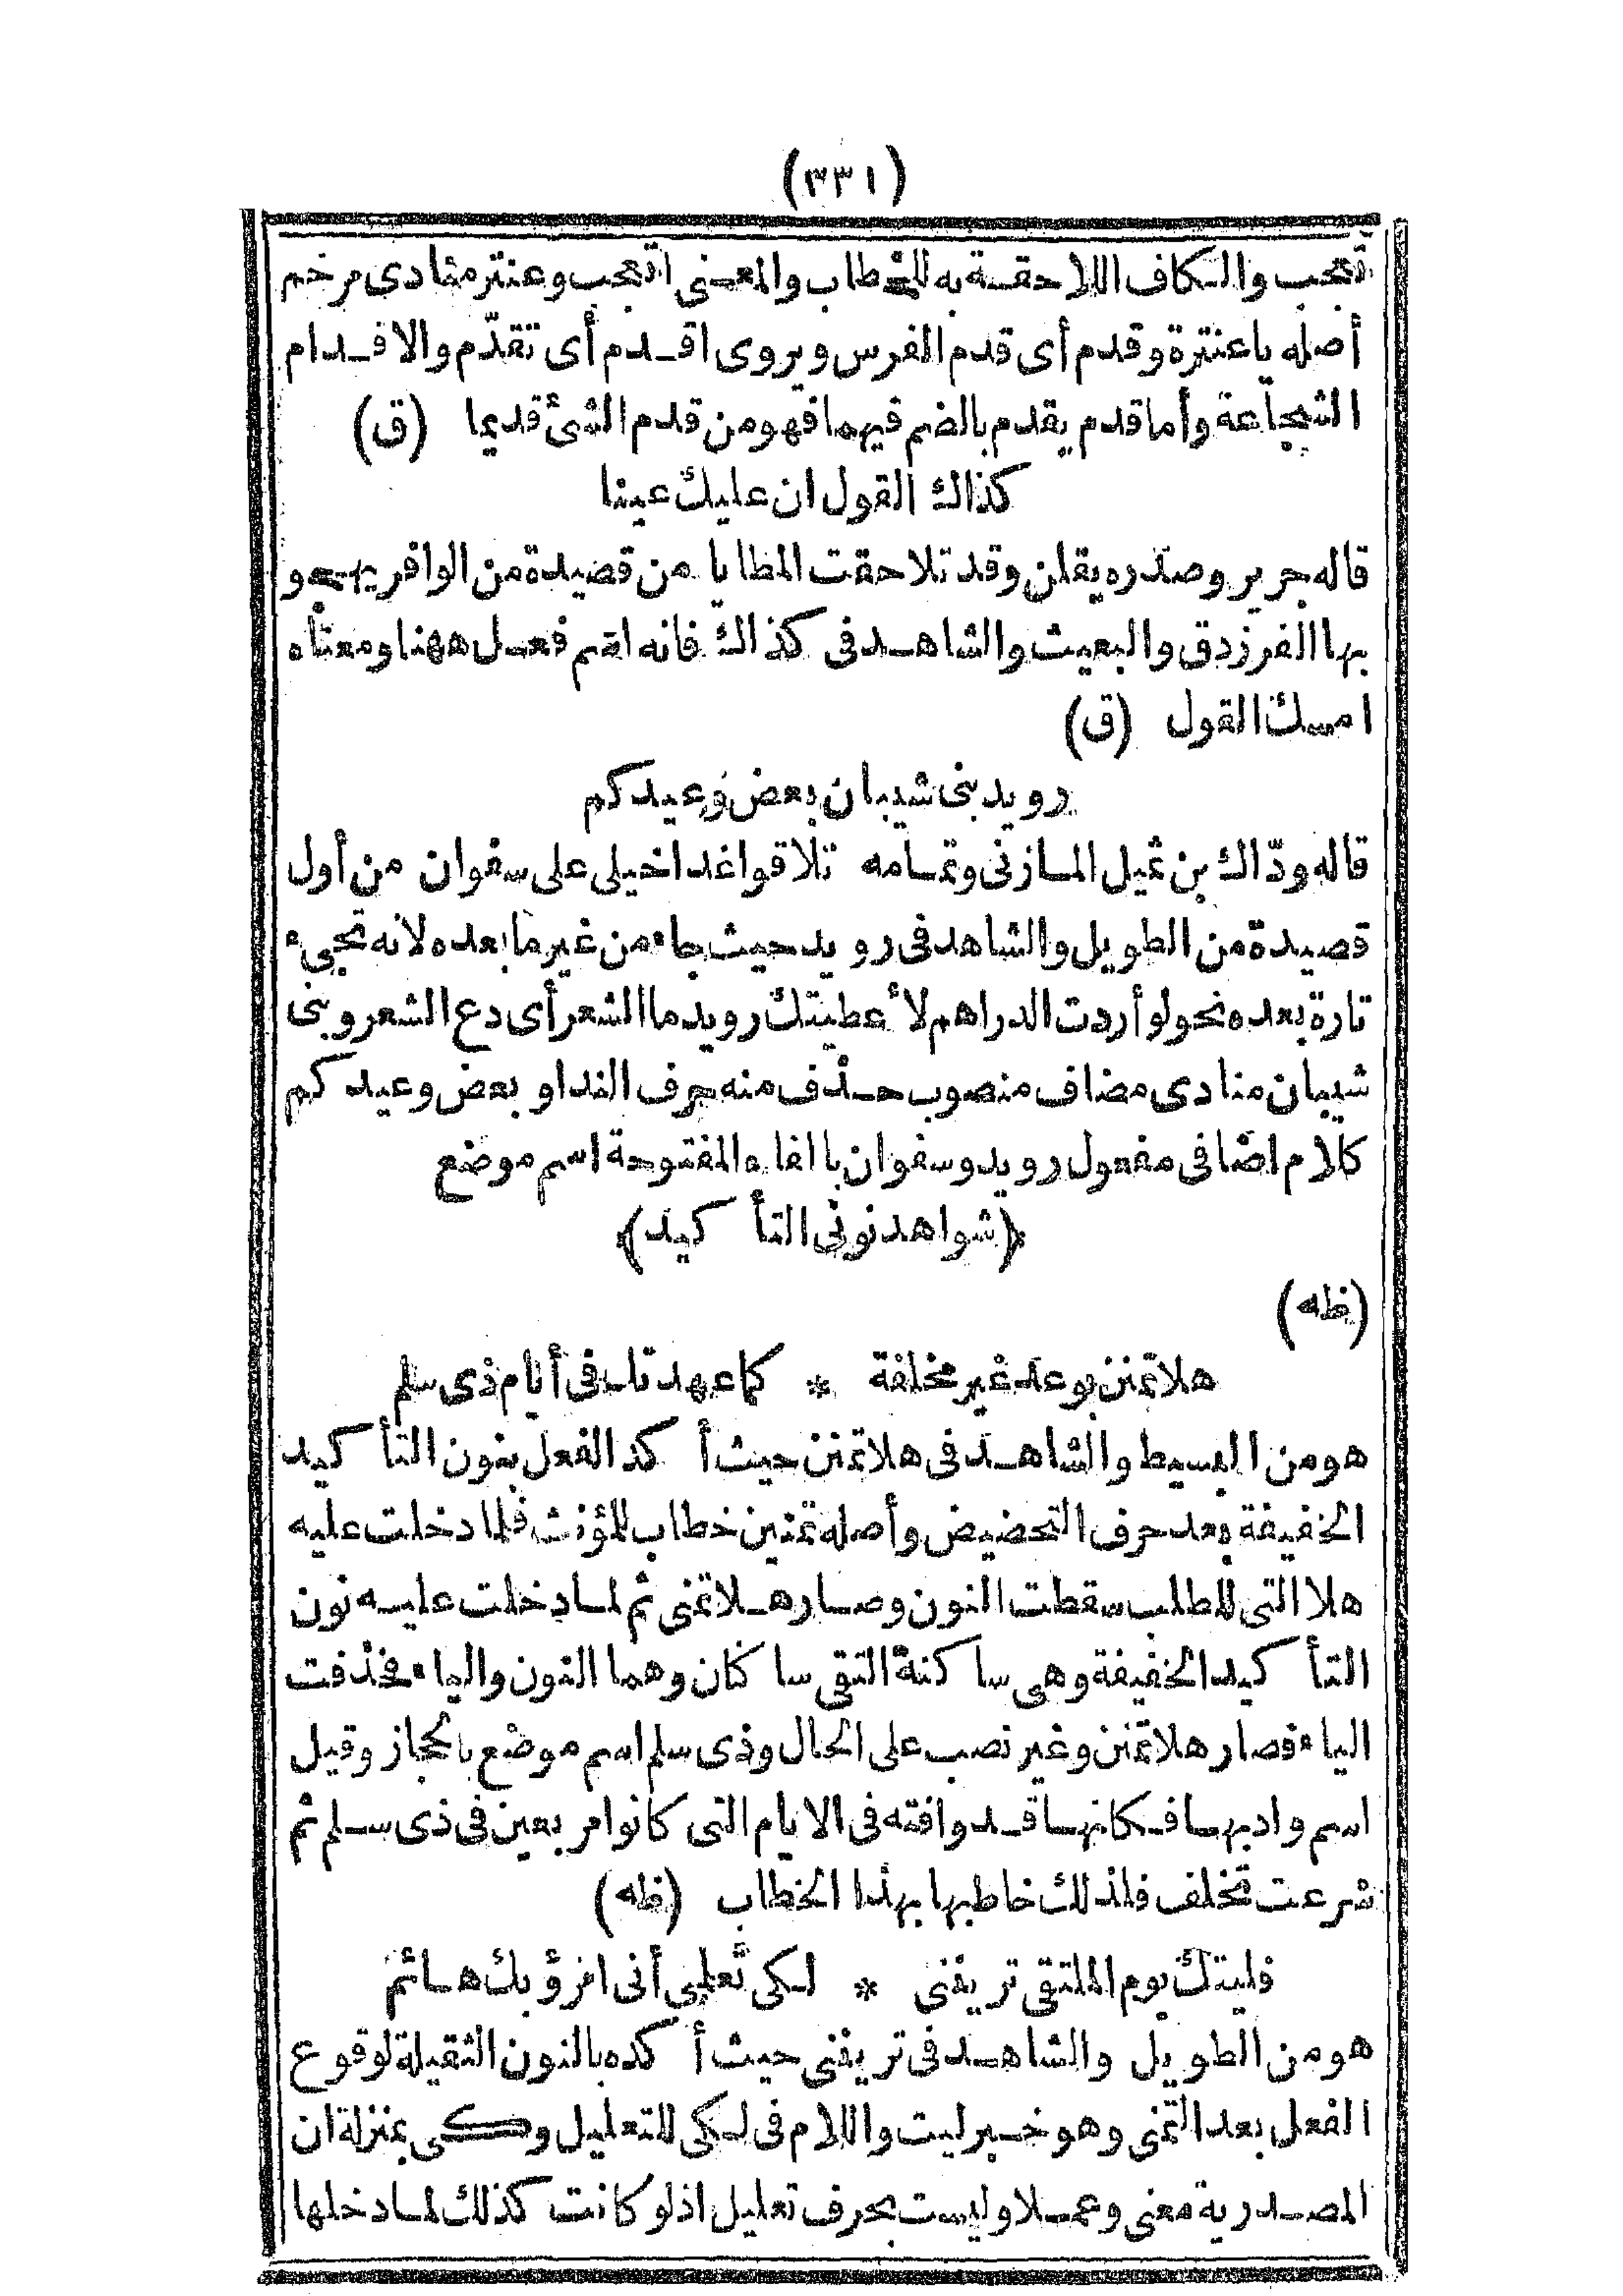 (٣٣١)
أتعجب والكاف اللاحقة به للخطاب والمعنى أتعجب وعنتر منادى مرخم
أصله ياعنترة وقدم أى قدم الفرس ويروى اقدم أى تقدّم والاقدام
الشجاعة وأما قدم يقدم بالضم فيهما فهو من قدم الشئ قديما (ق)
كذاك القول ان عليك عينا
قاله جرير وصدره يقلن وقد تلاحقت المطايا من قصيدة من الوافر يهجو
بها الفرزدق والبعيث والشاهد فى كذاك فانه اسم فعل ههنا ومعناه
امسك القول (ق)
رويد بنى شيبان بعض وعيدكم
قاله ودّاك بن ثميل المازنى وتمامه تلاقوا غدا خيلى على سفوان من أول
قصيدة من الطويل والشاهد فى رويد حيث جاء من غير ما بعده لانه تجىء
تارة بعده نحو لو أردت الدراهم لأعطيتك رويد ما الشعر أى دع الشعر وبنى
شيبان منادى مضاف منصوب حذف منه حرف الندا وبعض وعيدكم
كلام اضافى مفعول رويد وسفوان بالفاء المفتوحة اسم موضع
(شواهد نونى التأكيد)
(ظه)
هلا تمنن بوعد غير مخلفة * كما عهدتك فى أيام ذى سلم
هو من البسيط والشاهد فى هلا تمنن حيث أكد الفعل بنون التأكيد
الخفيفة بعد حرف التحضيض وأصله تمنين خطاب للمؤنث فلما دخلت عليه
هلا التى للطلب سقطت النون وصار هلا تمنى ثم لما دخلت عليه نون
التأكيد الخفيفة وهى ساكنة التقى ساكنان وهما النون والياء فحذفت
الياء فصار هلا تمنن وغير نصب على الحال وذى سلم اسم موضع بالحجاز وقيل
اسم واد بها فكانها قد وافته فى الايام التى كانوا مر بعين فى ذى سلم ثم
شرعت تخلف فلذلك خاطبها بهذا الخطاب (ظه)
فليتك يوم الملتقى ترينى * لكى تعلمى أنى امرؤ بك هائم
هو من الطويل والشاهد فى ترينى حيث أكده بالنون الثقيلة لوقوع
الفعل بعد التمنى وهو خبر ليت واللام فى لكى للتعليل وكى بمنزلة ان
المصدرية معنى وعملا وليست بحرف تعليل اذ لو كانت كذلك لما دخلها